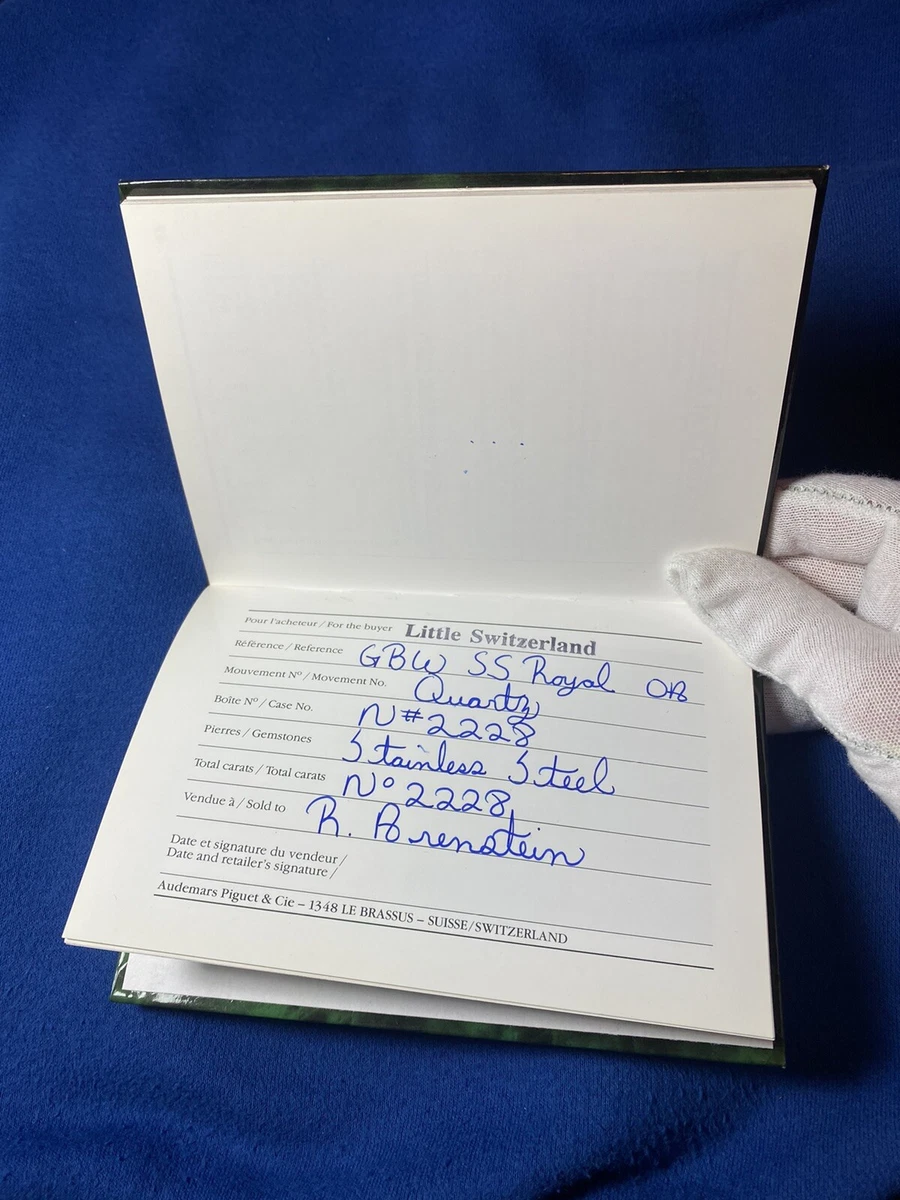 Pour l'acheteur / For the buyer Little Switzerland
Référence / Reference GBW SS Royal OB
Mouvement Nº / Movement No. Quartz
Boîte Nº / Case No. N#2228
Pierres / Gemstones Stainless Steel
Total carats / Total carats Nº 2228
Vendue à / Sold to R. Arenstein
Date et signature du vendeur /
Date and retailer's signature /
Audemars Piguet & Cie – 1348 LE BRASSUS – SUISSE/SWITZERLAND